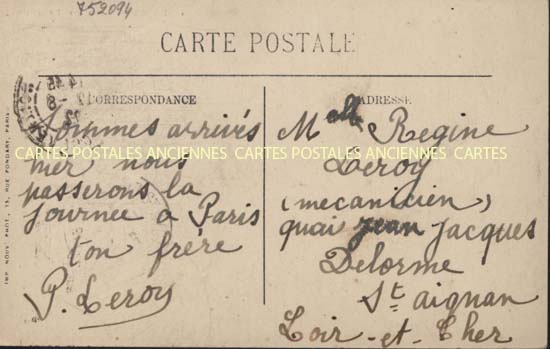 752094
CARTE POSTALE
CORRESPONDANCE
Sommes arrivés
hier nous
passerons la
journee a Paris
ton frère
P. Leroy
ADRESSE
Melle Regine
Leroy
(mecanicien)
quai jean jacques
Delorme
St aignan
Loir-et-Cher
CARTES POSTALES ANCIENNES CARTES POSTALES ANCIENNES CARTES
IMP. NOUV. PHOT., 15, RUE FONDARY, PARIS